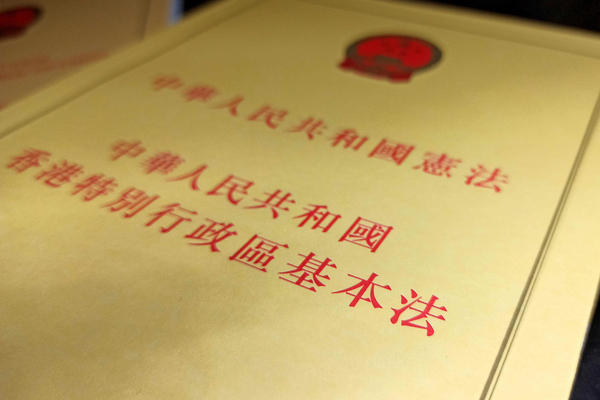 中華人民共和國憲法
中華人民共和國
香港特別行政區基本法